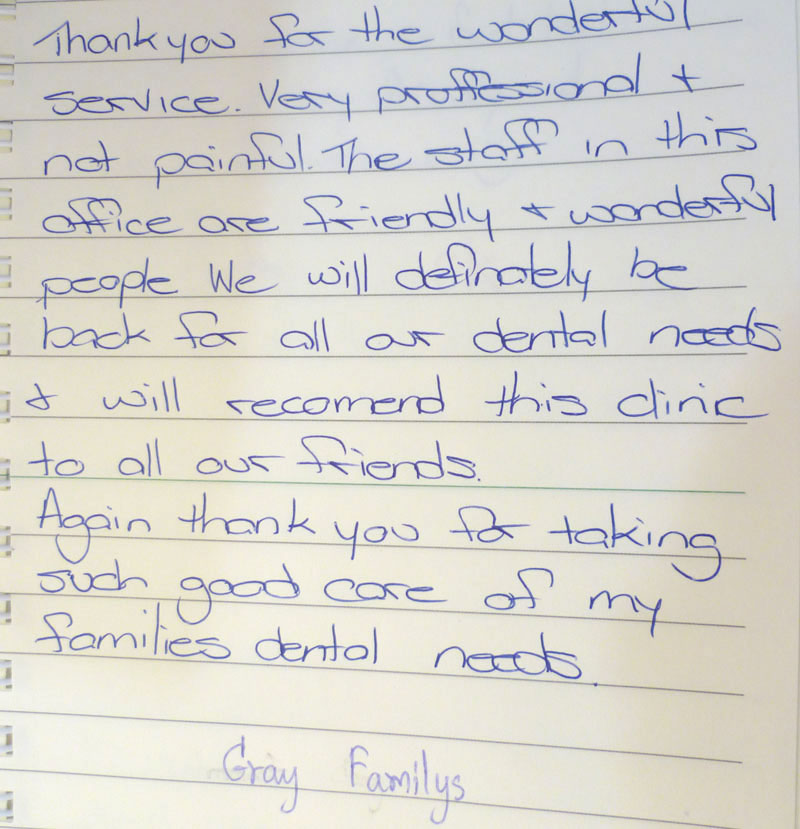 Thank you for the wonderful
service. Very proffessional +
not painful. The staff in this
office are friendly + wonderful
people We will definately be
back for all our dental needs
+ will recomend this clinic
to all our friends.
Again thank you for taking
such good care of my
families dental needs.
Gray Familys